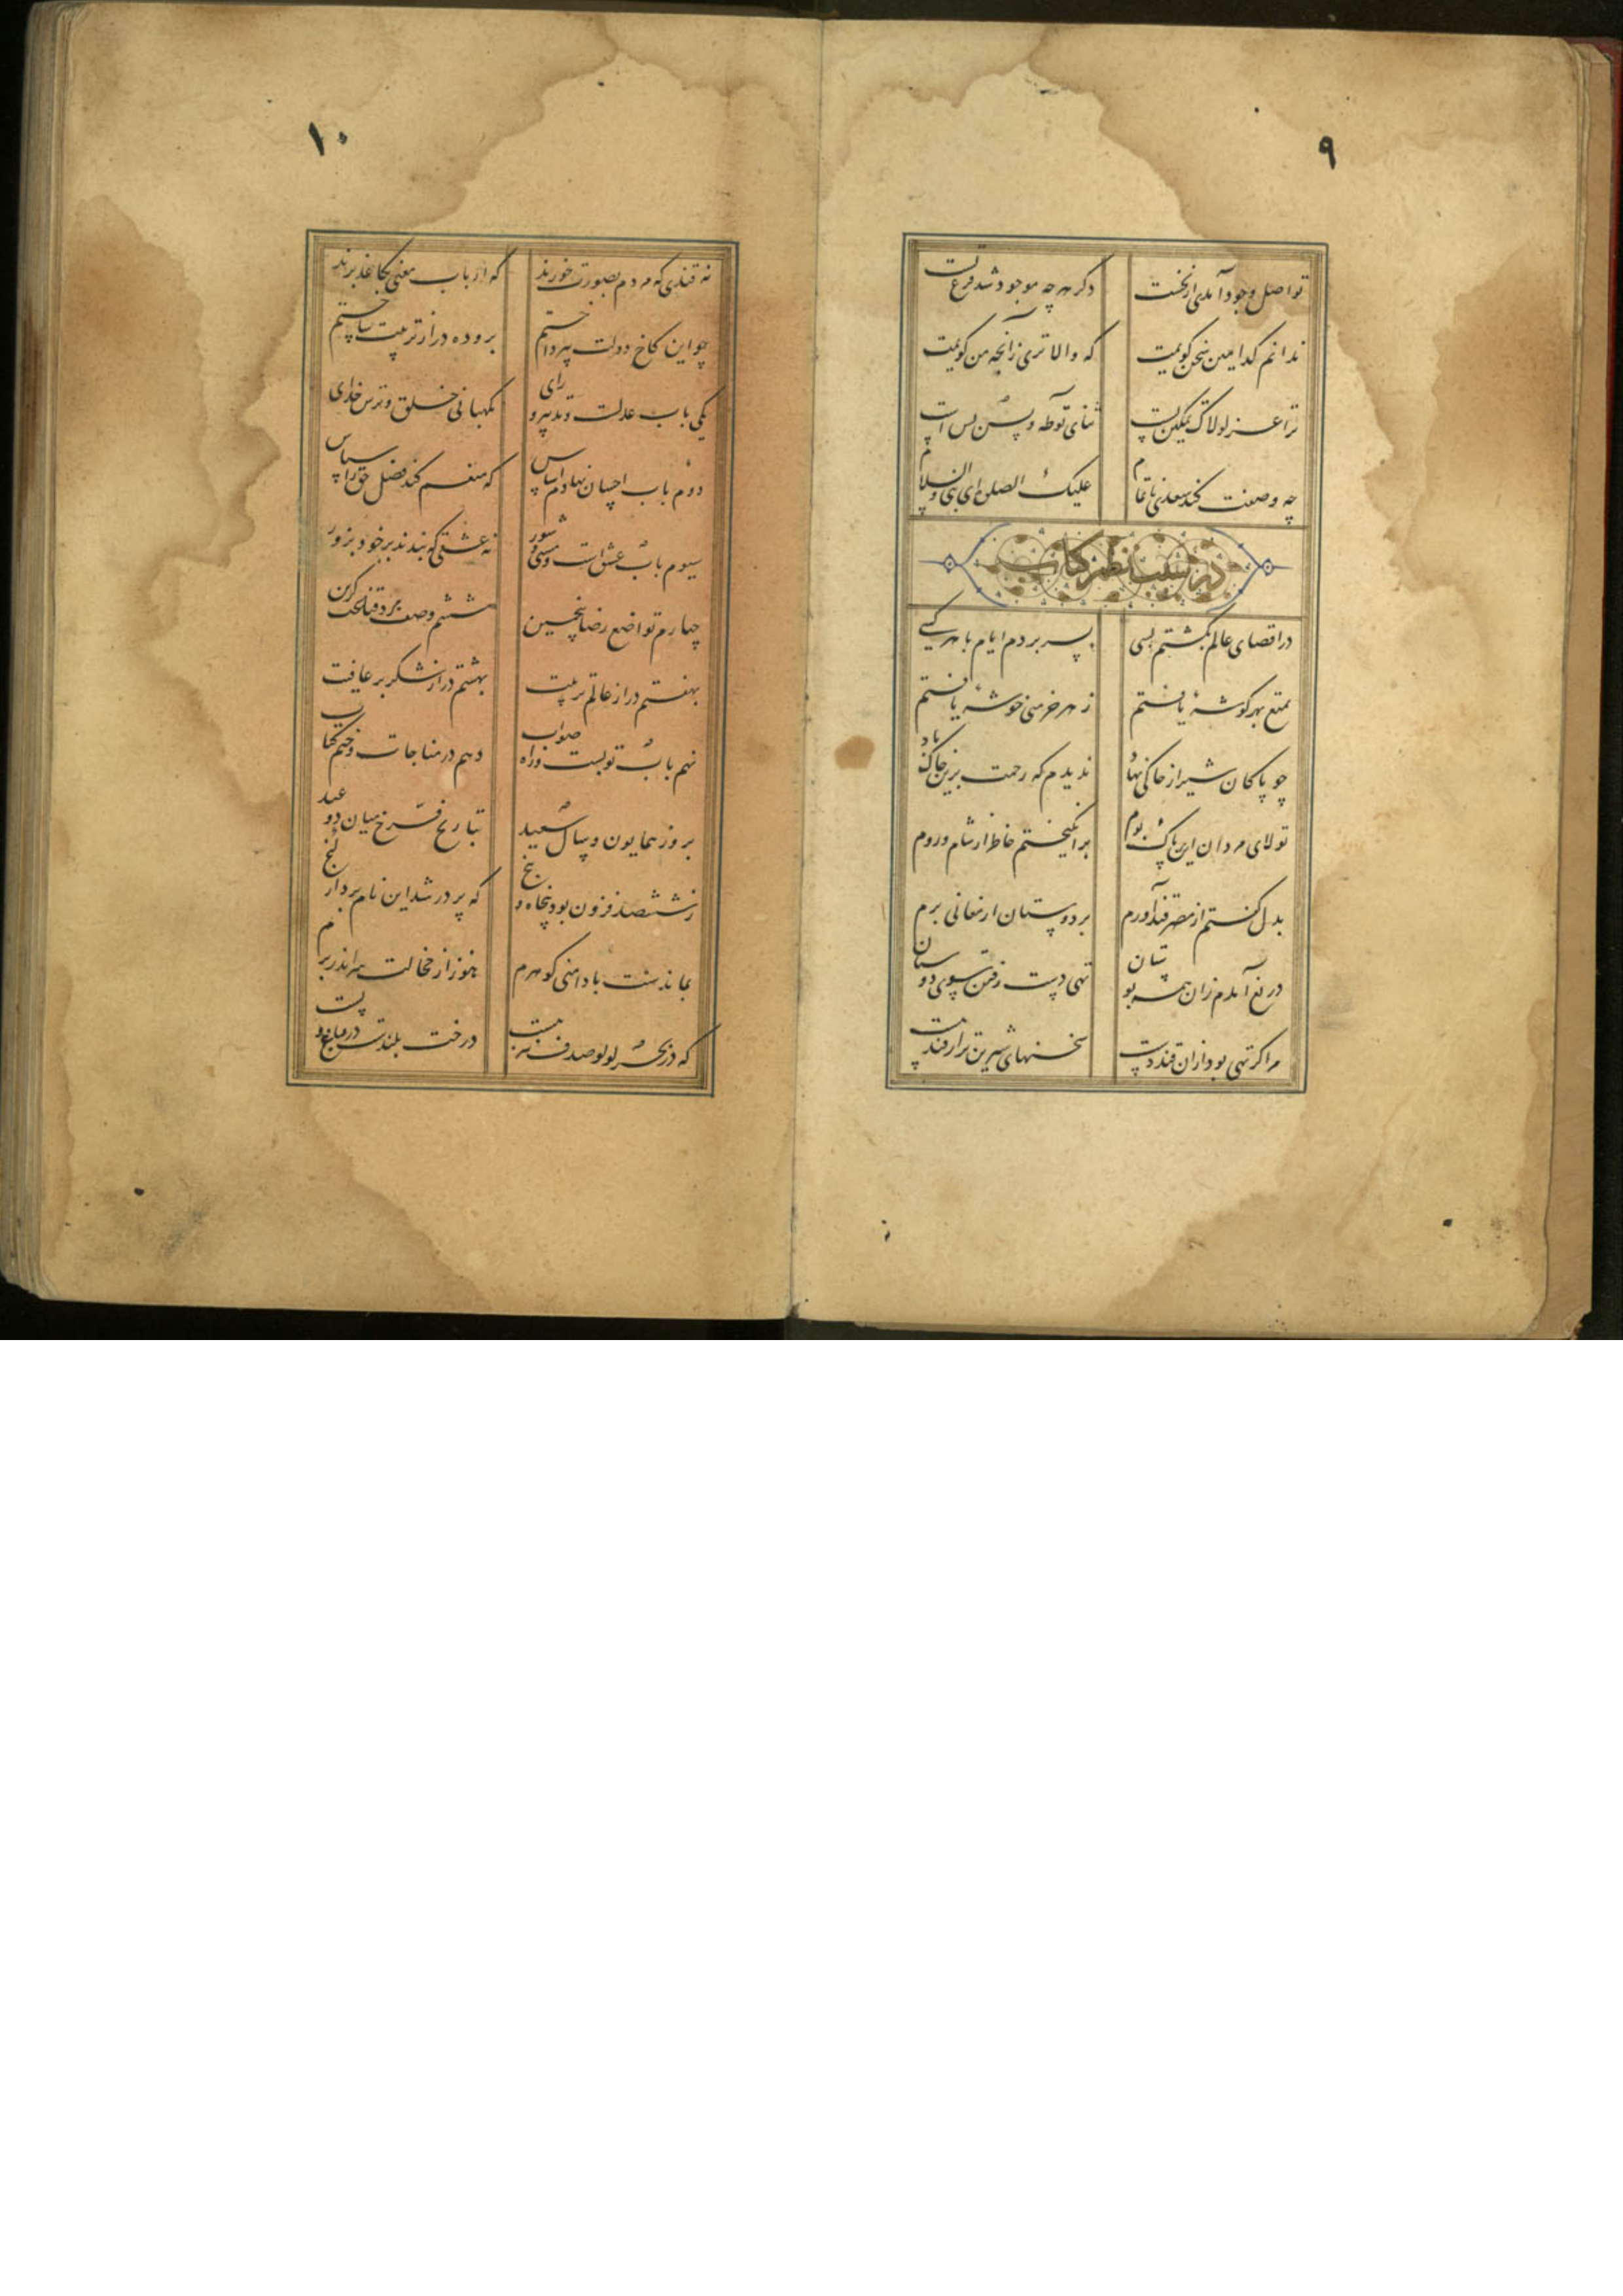 ۹
تو اصل وجود آمدی از نخست دگر هرچه موجود شد فرع تست
ندانم کدامین سخن گویمت که والاتری زانچه من گویمت
ترا عز لولاک تمکین بس است ثنای تو طه و یس بس است
چه وصفت کند سعدی ناتمام علیک الصلوة ای نبی والسلام
در سبب نظم کتاب
در اقصای عالم بگشتم بسی بسر بردم ایام با هر کسی
تمتع بهر گوشهٔ یافتم ز هر خرمنی خوشهٔ یافتم
چو پاکان شیراز خاکی نهاد ندیدم که رحمت برین خاک باد
تولای مردان این پاک بوم برانگیختم خاطر از شام و روم
بدل گفتم از مصر قند آورم بر دوستان ارمغانی برم
دریغ آمدم زان همه بوستان تهی دست رفتن سوی دوستان
مرا گر تهی بود ازان قند دست سخنهای شیرین تر از قند هست
۱۰
نه قندی که مردم بصورت خورند که ارباب معنی بکاغذ برند
چو این کاخ دولت بپرداختم برو ده در از تربیت ساختم
یکی باب عدلست و تدبیر و رای نگهبانی خلق و ترس خدای
دوم باب احسان نهادم اساس که منعم کند فضل حق را سپاس
سیوم باب عشق است و مستی و شور نه عشقی که بندند بر خود بزور
چهارم تواضع رضا پنجمین ششم وصف مرد قناعت گزین
بهفتم در از عالم تربیت بهشتم در از شکر بر عافیت
نهم باب توبست و راه صواب دهم در مناجات و ختم کتاب
بروز همایون و سال سعید بتاریخ فرخ میان دو عید
ز ششصد فزون بود پنجاه و پنج که پر در شد این نام بردار گنج
بماندست با دامنی گوهرم هنوز از خجالت سر اندر برم
که در بحر لولو صدف نیز هست درخت بلندست در باغ و پست